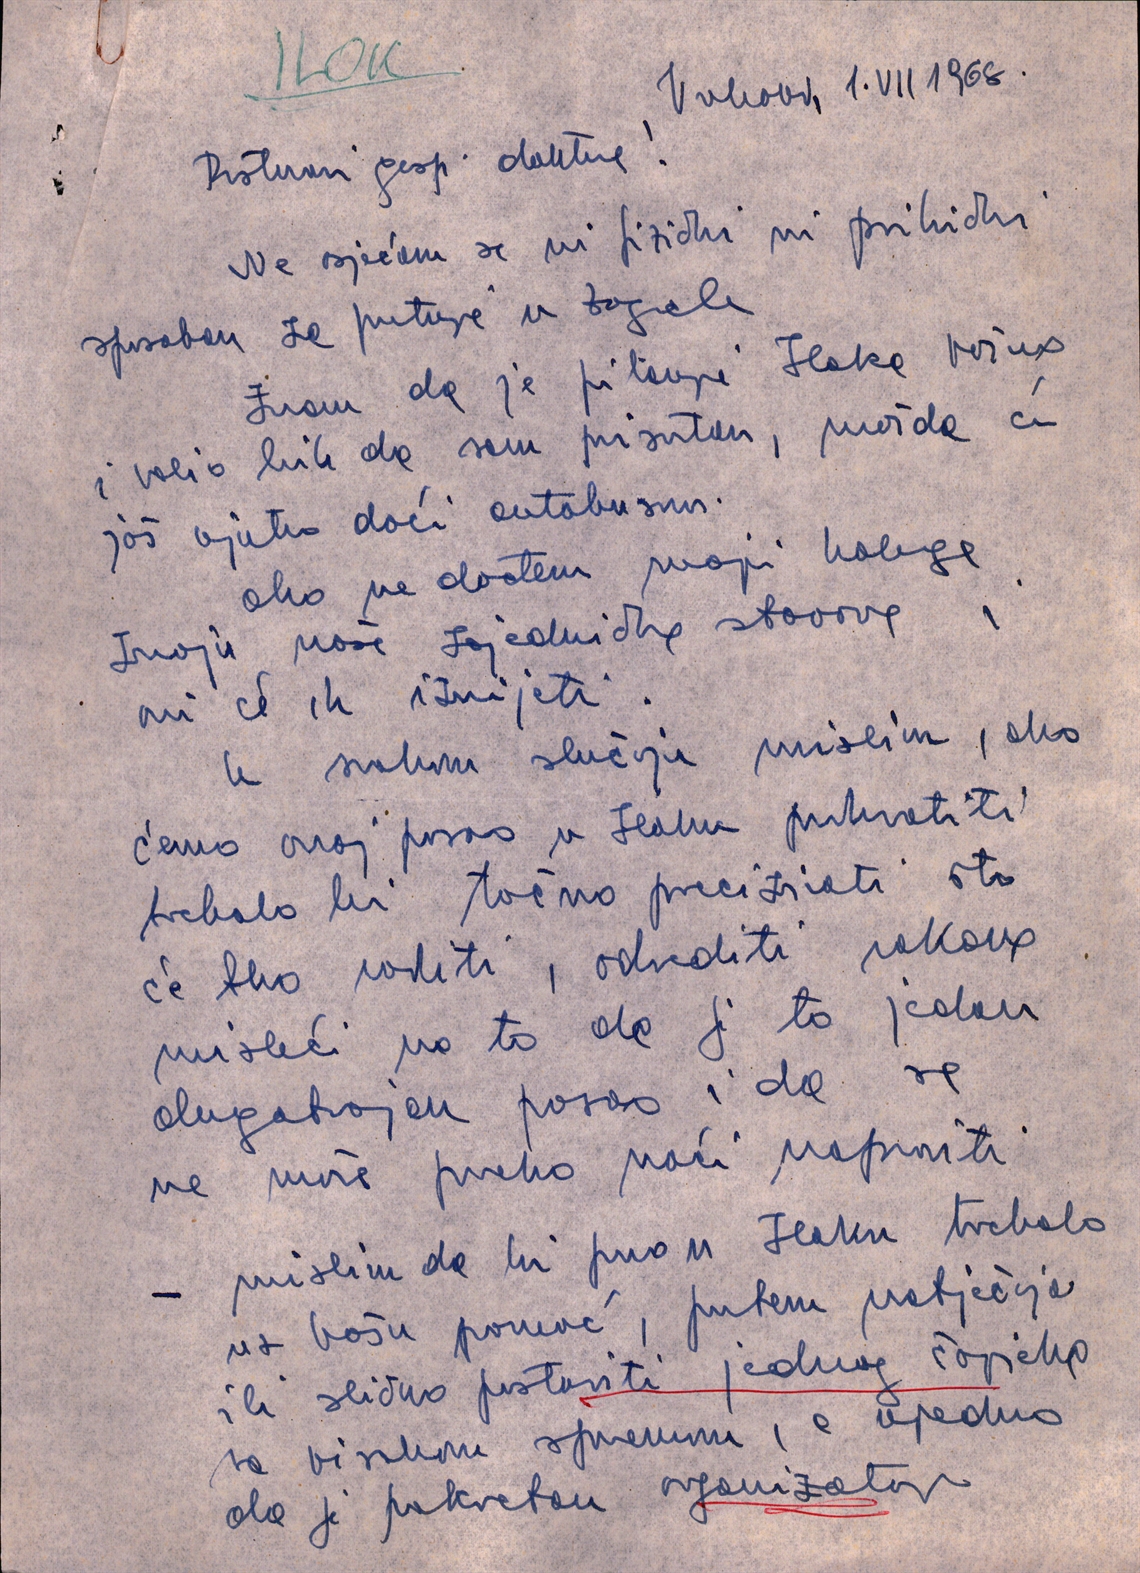 ILOK
Vukovar, 1.VII 1968.
Poštovani gosp. doktore!
Ne osjećam se ni fizički ni psihički
sposoban za putuje u Zagreb
Znam da je pitanje Iloka važno
i volio bih da sam prisutan, možda ću
još ujutro doći autobusom.
ako ne dođem moji kolege
znaju naše zajedničke stavove i
oni će ih iznijeti.
U svakom slučaju mislim, ako
ćemo ovaj posao u Iloku prihvatiti
trebalo bi točno precizirati što
će tko voditi, odrediti rokove
misleći na to da je to jedan
dugotrajan posao i da se
ne može preko noći napraviti
– mislim da bi prvo u Iloku trebalo
uz Vašu pomoć, putem natječaja
ili slično postaviti jednog čovjeka
sa visokom spremom, a ujedno
da je pokretan organizator